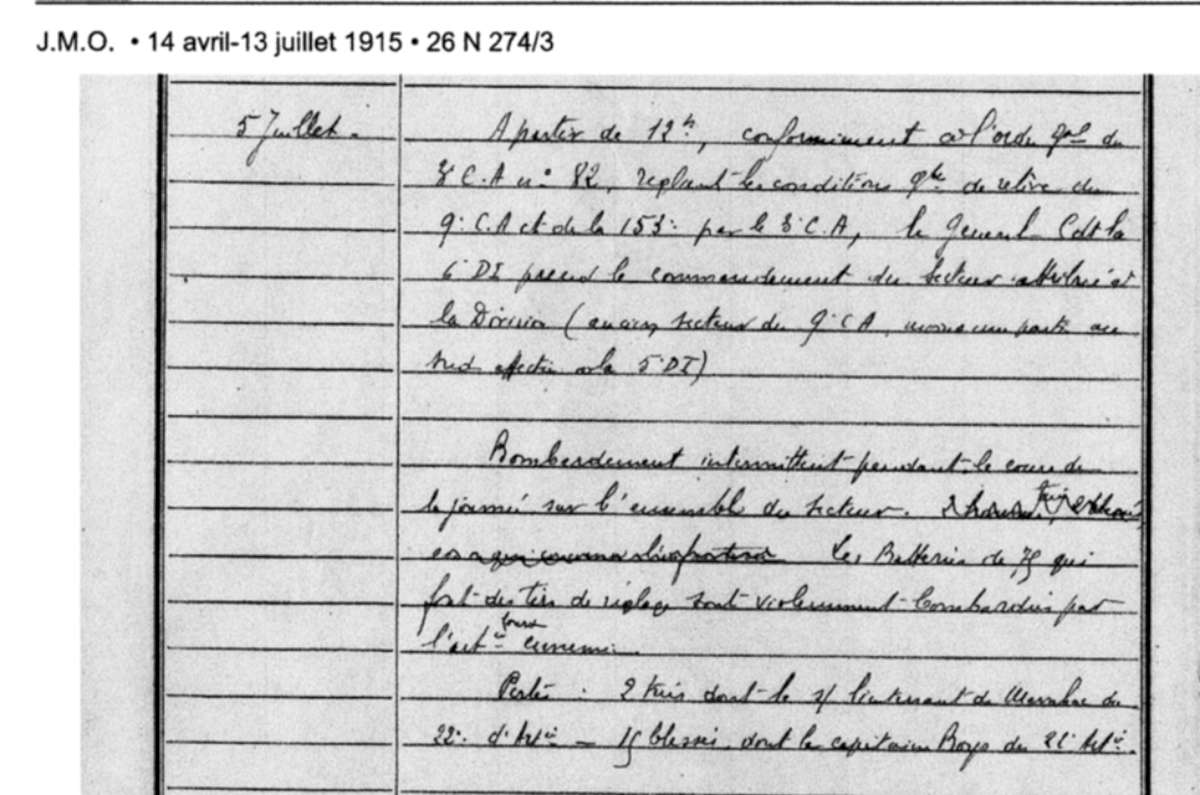 J.M.O. • 14 avril-13 juillet 1915 • 26 N 274/3
5 Juillet. A partir de 12h, conformément à l'ordre gal du
3e C.A n° 82, réglant les conditions gles de relève du
9e C.A et de la 153e par le 3e C.A, le Général Cdt la
6e DI prend le commandement du secteur attribué à
la Division (ancien secteur du 9e CA, moins une partie au
sud affectée à la 5e DI)
Bombardement intermittent pendant le cours de
la journée sur l'ensemble du secteur.
Les Batteries de 75 qui
font des tirs de réglage sont violemment bombardées par
l'artie ennemie.
Pertes : 2 tués dont le s/ lieutenant de du
22e d'Artie — 15 blessés, dont le capitaine du 22e Artie.